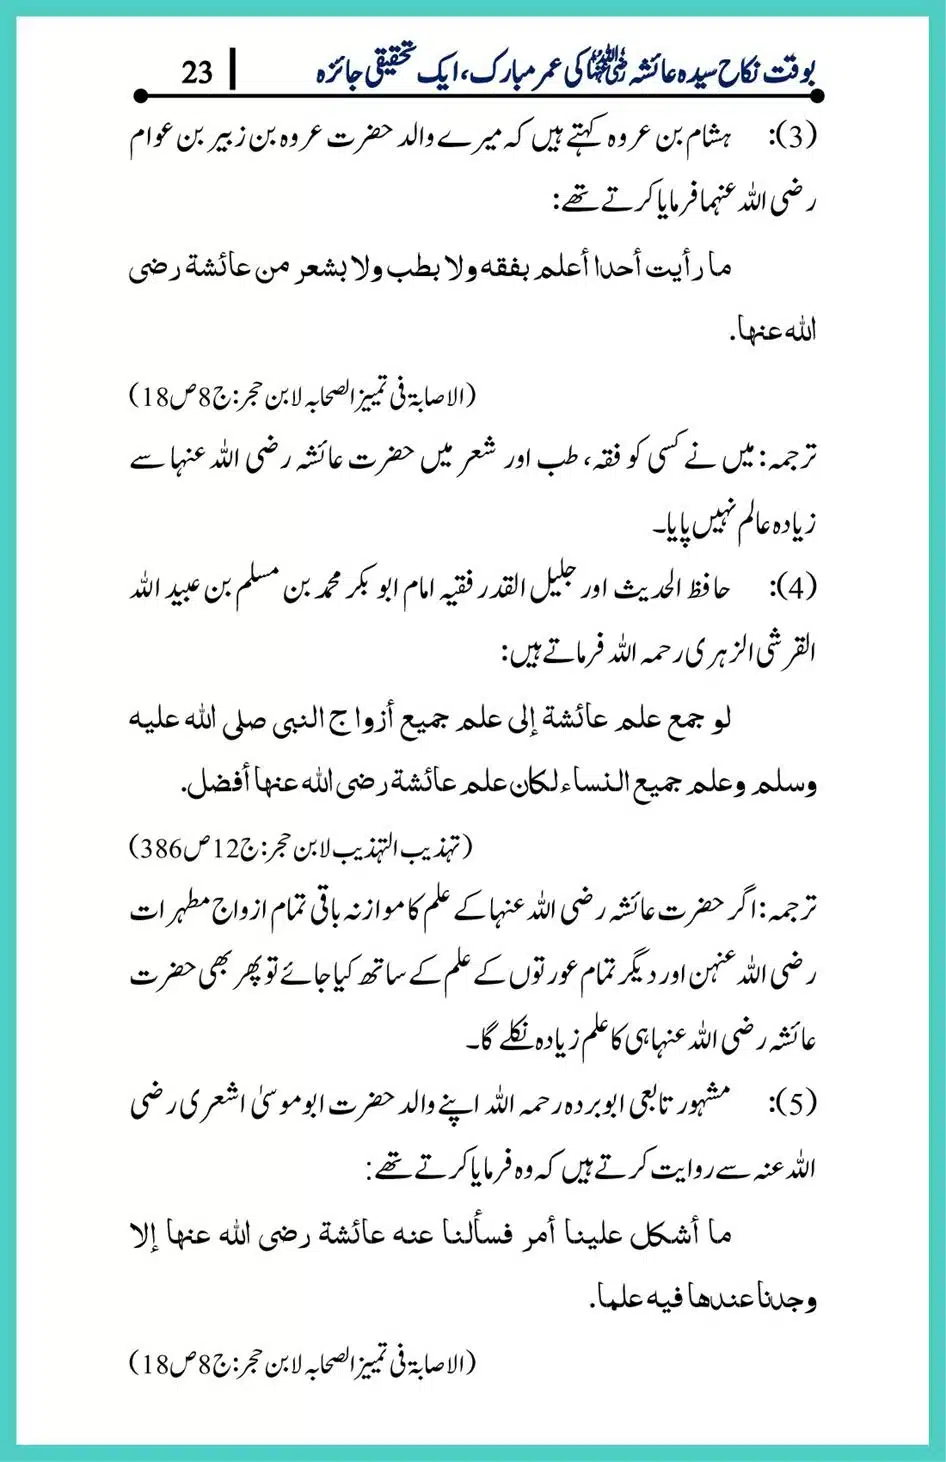 بوقت نکاح سیدہ عائشہ رضی اللہ عنہا کی عمر مبارک، ایک تحقیقی جائزہ | 23
(3): ہشام بن عروہ کہتے ہیں کہ میرے والد حضرت عروہ بن زبیر بن عوام
رضی اللہ عنہما فرمایا کرتے تھے:
ما رأيت أحدا أعلم بفقه ولا بطب ولا بشعر من عائشة رضی
الله عنها.
(الاصابۃ فی تمییز الصحابہ لابن حجر: ج8ص18)
ترجمہ: میں نے کسی کو فقہ، طب اور شعر میں حضرت عائشہ رضی اللہ عنہا سے
زیادہ عالم نہیں پایا۔
(4): حافظ الحدیث اور جلیل القدر فقیہ امام ابو بکر محمد بن مسلم بن عبید اللہ
القرشی الزہری رحمہ اللہ فرماتے ہیں:
لو جمع علم عائشة إلى علم جميع أزواج النبی صلی الله عليه
وسلم وعلم جميع النساء لكان علم عائشة رضی الله عنها أفضل.
(تہذیب التہذیب لابن حجر: ج12ص386)
ترجمہ: اگر حضرت عائشہ رضی اللہ عنہا کے علم کا موازنہ باقی تمام ازواج مطہرات
رضی اللہ عنہن اور دیگر تمام عورتوں کے علم کے ساتھ کیا جائے تو پھر بھی حضرت
عائشہ رضی اللہ عنہا ہی کا علم زیادہ نکلے گا۔
(5): مشہور تابعی ابو بردہ رحمہ اللہ اپنے والد حضرت ابو موسیٰ اشعری رضی
اللہ عنہ سے روایت کرتے ہیں کہ وہ فرمایا کرتے تھے:
ما أشكل علينا أمر فسألنا عنه عائشة رضی الله عنها إلا
وجدنا عندها فيه علما.
(الاصابۃ فی تمییز الصحابہ لابن حجر: ج8ص18)